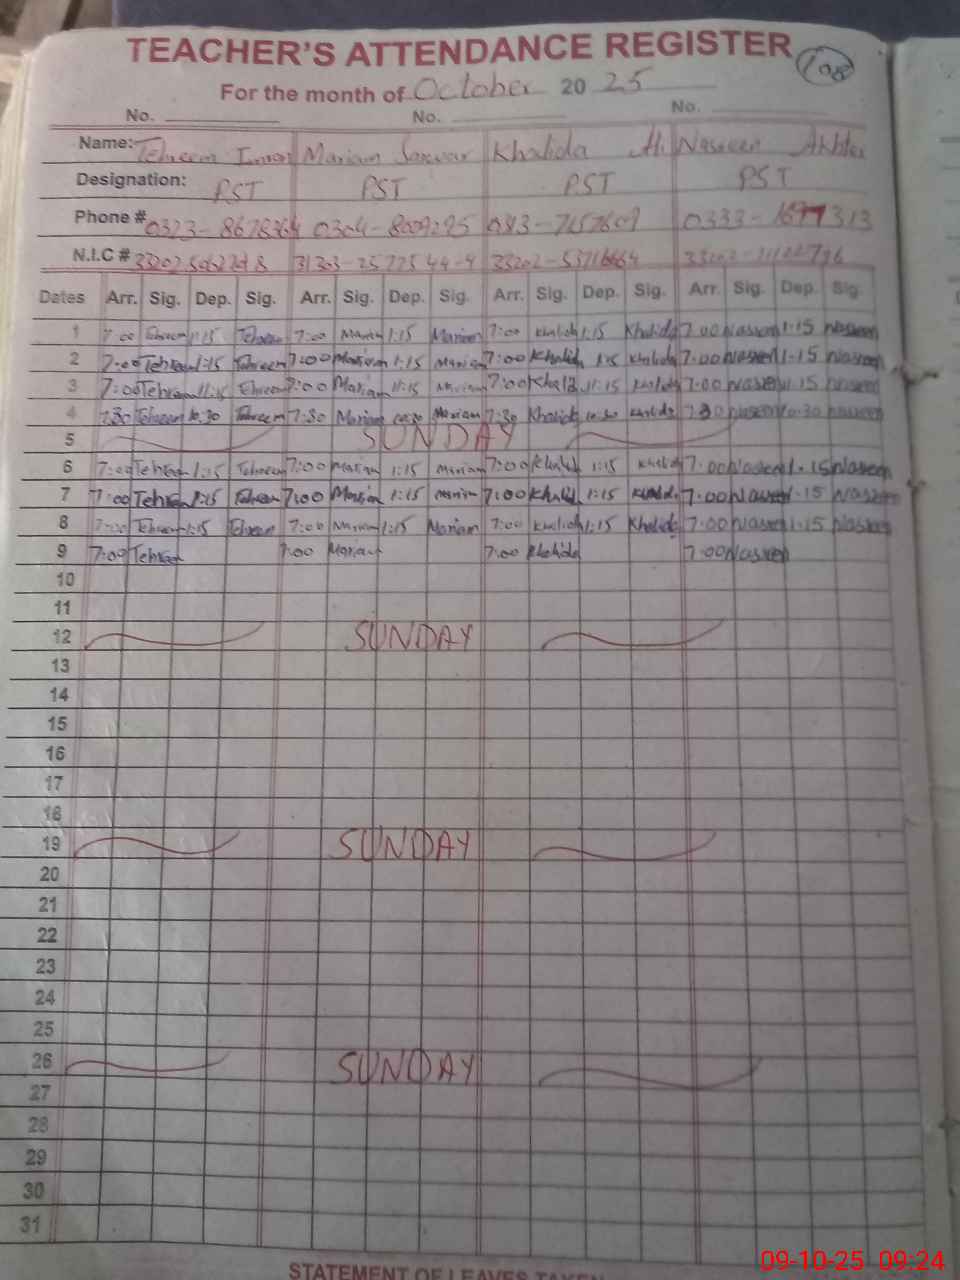 TEACHER'S ATTENDANCE REGISTER 108
For the month of October 20 25
No. No. No.
Name: Tehreem Imran Mariam Sarwar Khalida Naseem Akhter
Designation: PST PST PST PST
Phone #
N.I.C #
Dates Arr. Sig. Dep. Sig. Arr. Sig. Dep. Sig. Arr. Sig. Dep. Sig. Arr. Sig. Dep. Sig.
1 7:00 Tehreem 1:15 Tehreem 7:00 Mariam 1:15 Mariam 7:00 Khalida 1:15 Khalida 7:00 Naseem 1:15 Naseem
2 7:00 Tehreem 1:15 Tehreem 7:00 Mariam 1:15 Mariam 7:00 Khalida 1:15 Khalida 7:00 Naseem 1:15 Naseem
3 7:00 Tehreem 11:15 Tehreem 7:00 Mariam 11:15 Mariam 7:00 Khalida 11:15 Khalida 7:00 Naseem 11:15 Naseem
4 7:30 Tehreem 10:30 Tehreem 7:30 Mariam 10:30 Mariam 7:30 Khalida 10:30 Khalida 7:30 Naseem 10:30 Naseem
5 SUNDAY
6 7:00 Tehreem 1:15 Tehreem 7:00 Mariam 1:15 Mariam 7:00 Khalida 1:15 Khalida 7:00 Naseem 1:15 Naseem
7 7:00 Tehreem 1:15 Tehreem 7:00 Mariam 1:15 Mariam 7:00 Khalida 1:15 Khalida 7:00 Naseem 1:15 Naseem
8 7:00 Tehreem 1:15 Tehreem 7:00 Mariam 1:15 Mariam 7:00 Khalida 1:15 Khalida 7:00 Naseem 1:15 Naseem
9 7:00 Tehreem 7:00 Mariam 7:00 Khalida 7:00 Naseem
10
11
12 SUNDAY
13
14
15
16
17
18
19 SUNDAY
20
21
22
23
24
25
26 SUNDAY
27
28
29
30
31
STATEMENT OF LEAVES TAKEN
09-10-25 09:24